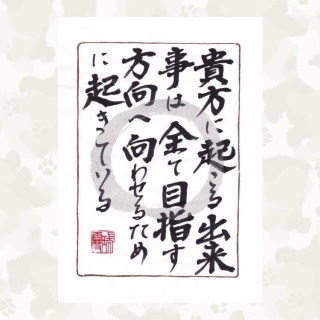 貴方に起こる出来
事は全て目指す
方向へ向わせるため
に起きている